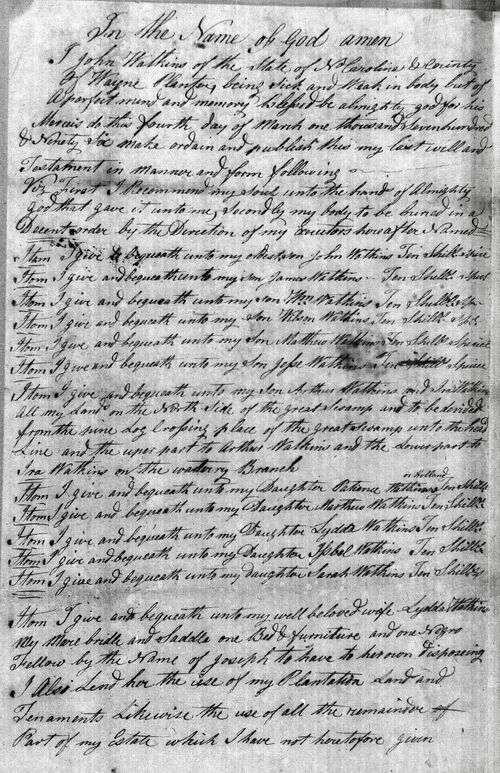 In the Name of God amen
I John Watkins of the State of No Carolina & County
of Wayne Planter, being Sick and Weak in body but of
a perfect mind and memory blessed be almighty god for his
Mercies do this fourth day of March one thousand Sevenhundred
& Ninety Six make ordain and publish this my last will and
Testament in manner and form following
Viz First I Recommend my Soul unto the hand of Almighty
god that gave it unto me, Secondly my body to be buried in a
Decent order by the Direction of my Executors hereafter Named
Itom I give & bequeath unto my oldest son John Watkins Ten Shills
Itom I give and bequeath unto my son James Watkins Ten Shills
Itom I give and bequeath unto my son Wm Watkins Ten Shills
Itom I give and bequeath unto my Son Wilson Watkins Ten Shills
Itom I give and bequeath unto my Son Mathew Watkins Ten Shills
Itom I give and bequeath unto my Son Jesse Watkins Ten
Itom I give and bequeath unto my Son Arthur Watkins and Ira Watkins
All my Land on the North Side of the great Swamp and to be devided
from the pine Log Crossing place of the great Swamp unto the head
Line and the uper part to Arthur Watkins and the Lower part to
Ira Watkins on the Branch
Itom I give and bequeath unto my Daughter Patience Watkins Holland Ten Shills
Itom I give and bequeath unto my Daughter Marthew Watkins Ten Shills
Itom I give and bequeath unto my Daughter Lydda Watkins Ten Shills
Itom I give and bequeath unto my Daughter Watkins Ten Shills
Itom I give and bequeath unto my daughter Sarah Watkins Ten Shills
Itom I give and bequeath unto my well beloved wife Lydda Watkins
My Mare bridle and Saddle one Bed & furniture and one Negro
Fellow by the Name of Joseph to have to her own Disposeing
I Also Lend her the use of my Plantation Land and
Tenaments Likewise the use of all the remainder
Part of my Estate which I have not heretofore given